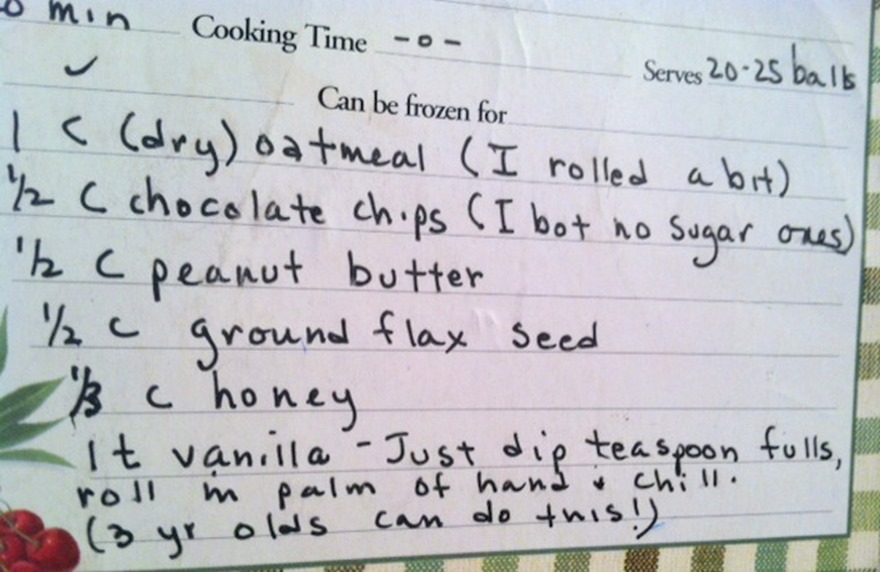 0 min Cooking Time -0-
✓ Serves 20-25 balls
Can be frozen for
1 C (dry) oatmeal (I rolled a bit)
1/2 C chocolate chips (I bot no sugar ones)
1/2 C peanut butter
1/2 c ground flax seed
1/3 c honey
1t vanilla - Just dip teaspoon fulls,
roll in palm of hand & chill.
(3 yr olds can do this!)